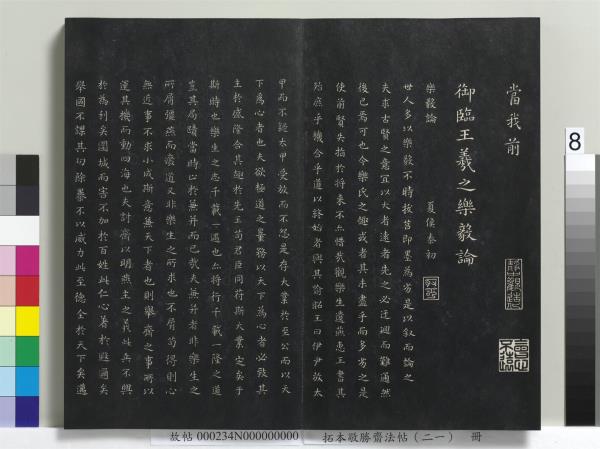 當我前
御臨王羲之樂毅論
樂毅論
夏侯泰初
世人多以樂毅不時拔莒即墨為劣是以叙而論之
夫求古賢之意宜以大者遠者先之必迂迴而難通然
後已焉可也今樂氏之趣或者其未盡乎而多劣之是
使前賢失指於將來不亦惜哉觀樂生遺燕惠王書其
殆庶乎機合乎道以終始者與其諭昭王曰伊尹放太
甲而不疑太甲受放而不怨是存大業於至公而以天
下為心者也夫欲極道之量務以天下為心者必致其
主於盛隆合其趣於先王苟君臣同符斯大業定矣于
斯時也樂生之志千載一遇也亦將行千載一隆之道
豈其局蹟當時止於兼并而已哉夫兼并者非樂生之
所屑彊燕而廢道又非樂生之所求也不屑苟得則心
無近事不求小成斯意兼天下者也則舉齊之事所以
運其機而動四海也夫討齊以明燕主之義此兵不興
於為利矣圍城而害不加於百姓此仁心著於遐邇矣
舉國不謀其功除暴不以威力此至德令於天下矣邁
8
故帖 000234N000000000
拓本敬勝齋法帖（二一） 冊